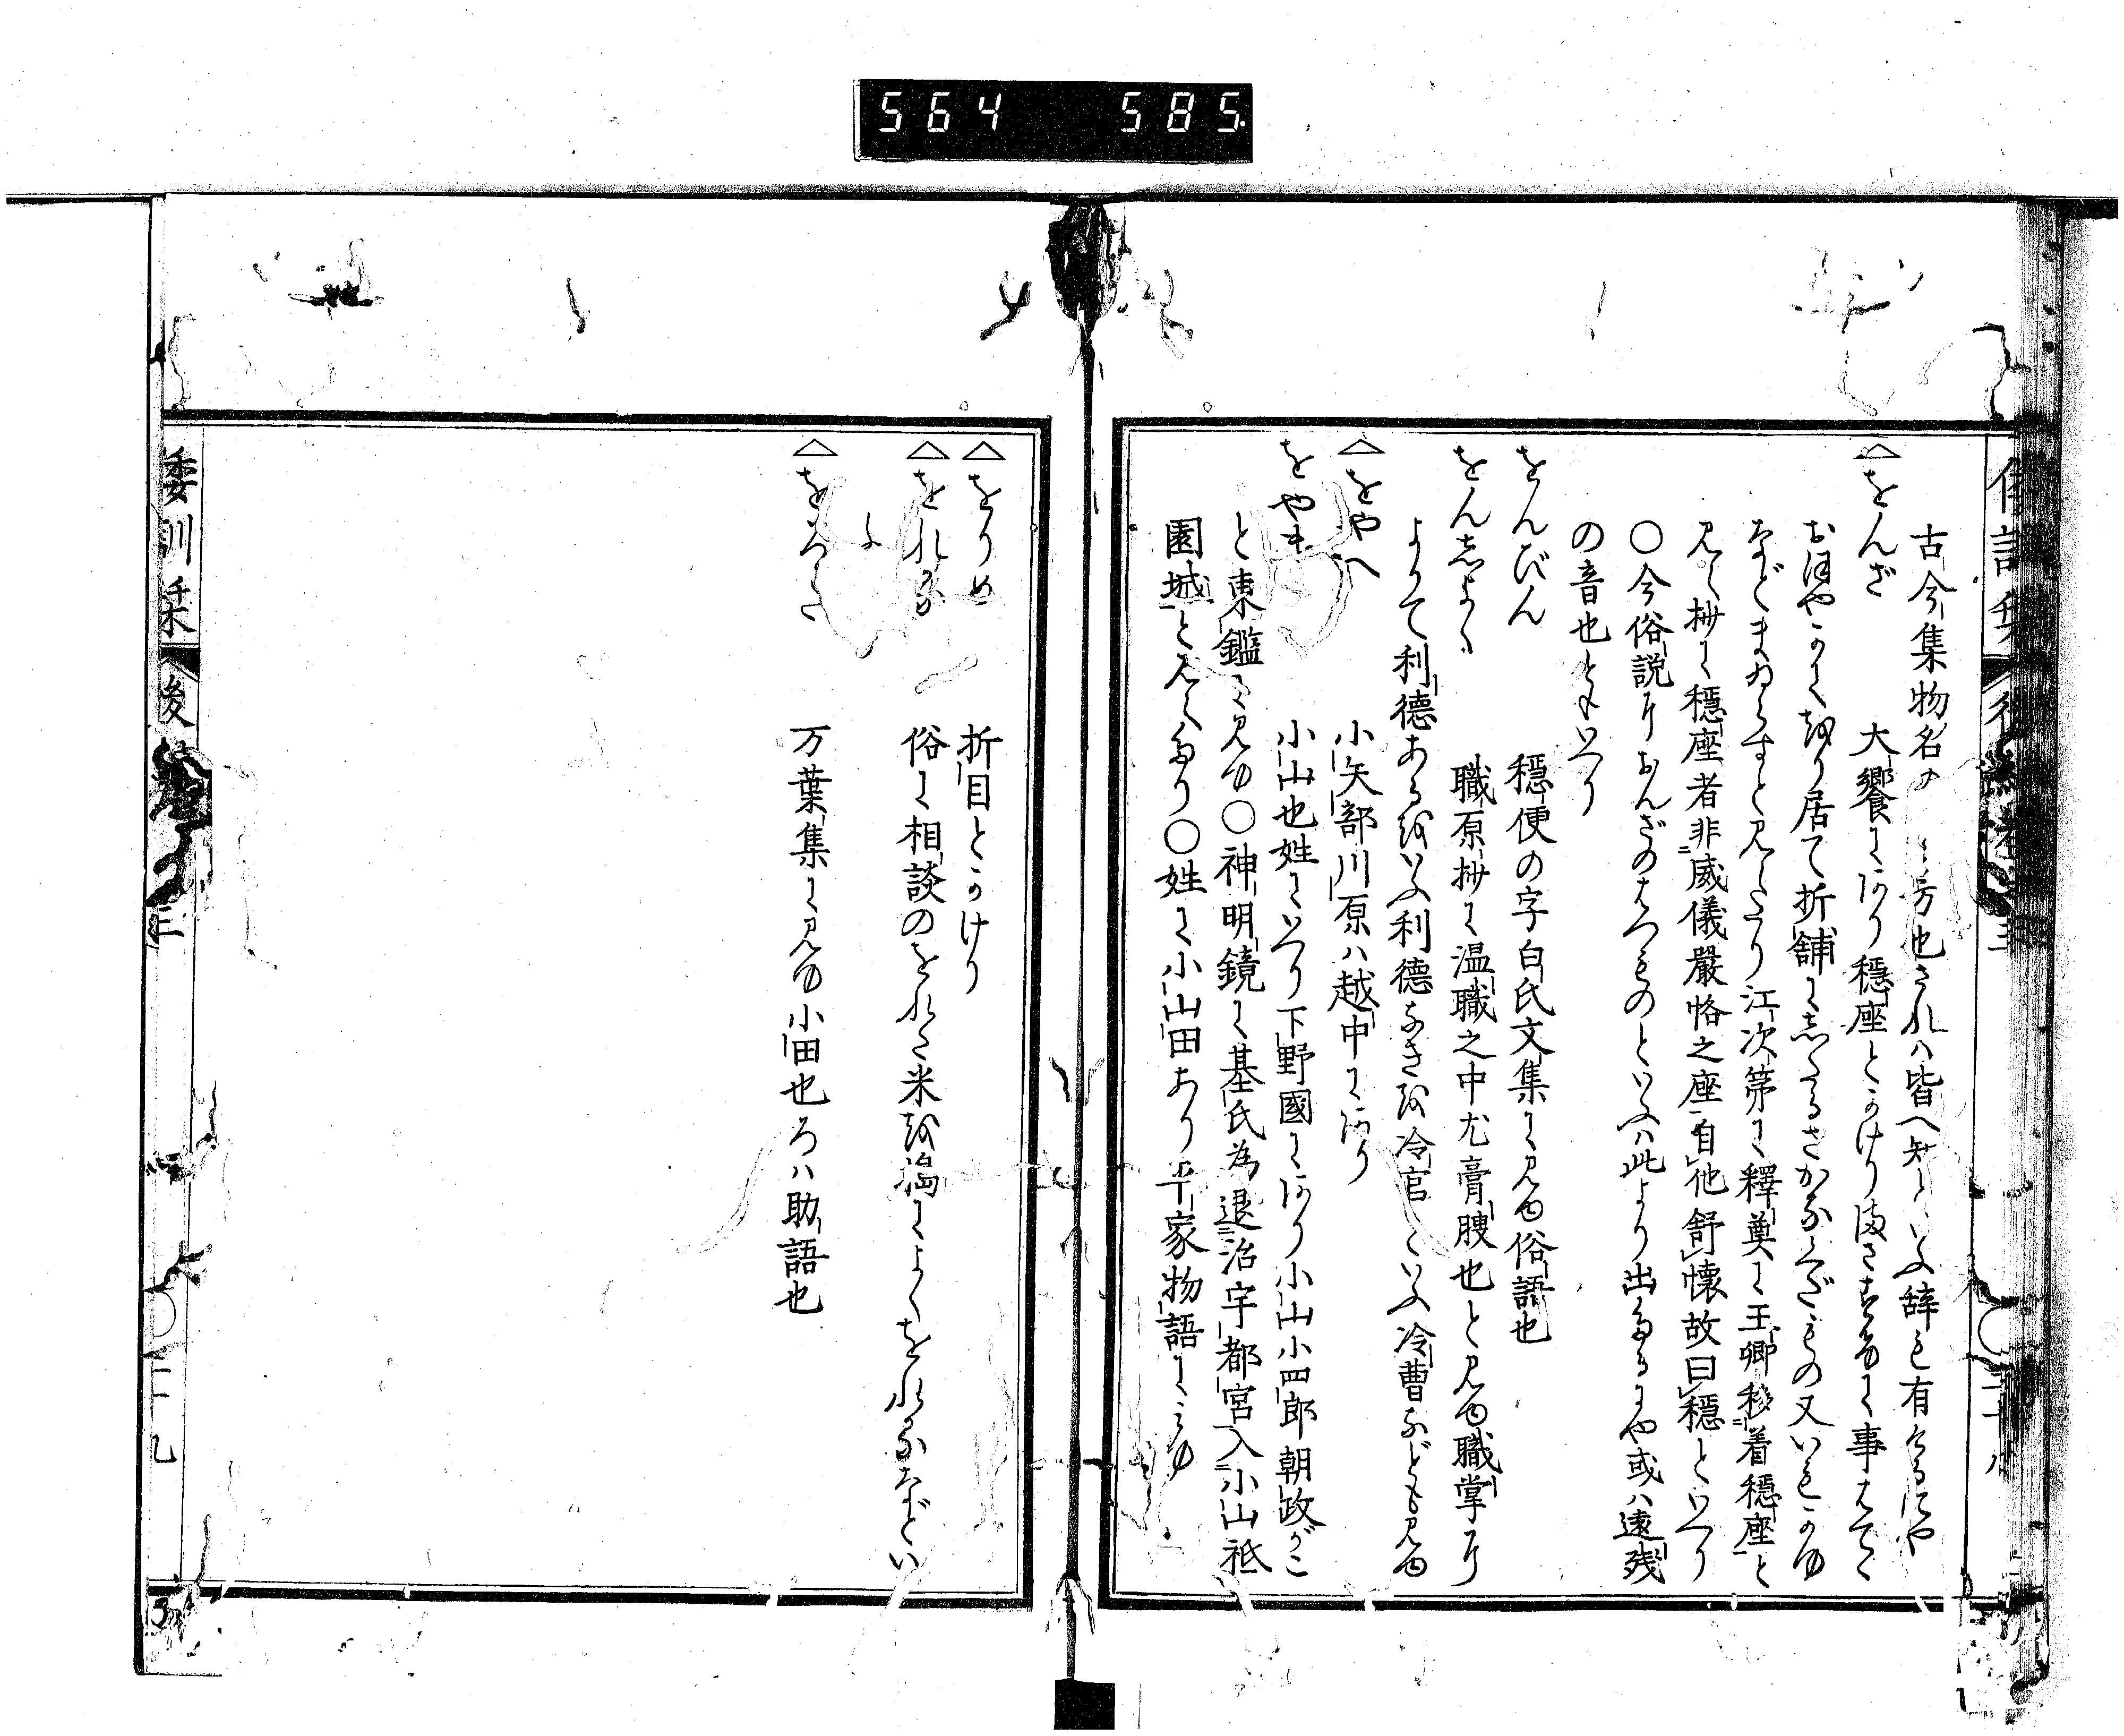 564 585
古今集物名の 方也されハ皆へ知るといふ辞も有けるにや
△をんざ 大饗にあり穏座とかけりまさすけに事はてゝ
おほやかにおり居て折鋪にしたるさかなくだもの又いもかゆ
などまゐらすと見えたり江次第に釋奠に王卿移着穏座と
見え抄に穏座者非威儀嚴恪之座自他舒懐故曰穏といへり
〇今俗説におんざのはつものといふハ此より出たるにや或ハ遠残
の音也ともいへり
をんびん 穏便の字白氏文集に見ゆ俗語也
をんしよく 職原抄に温職之中尤膏腴也と見ゆ職掌に
よりて利德あるをいふ利德なきを冷官といふ冷曹なども見ゆ
△をやへ 小矢部川原ハ越中にあり
をやま 小山也姓にいへり下野國にあり小山小四郎朝政がこ
と東鑑に見ゆ〇神明鏡に基氏為退治宇都宮入小山祗
園城と見えたり〇姓に小山田あり平家物語にみゆ
△をりめ 折目とかけり
△をれる 俗に相談のをれた米を搗によくをれるなどい
ふ
△をろた 万葉集に見ゆ小田也ろハ助語也
倭訓栞 後 三 〇二十九